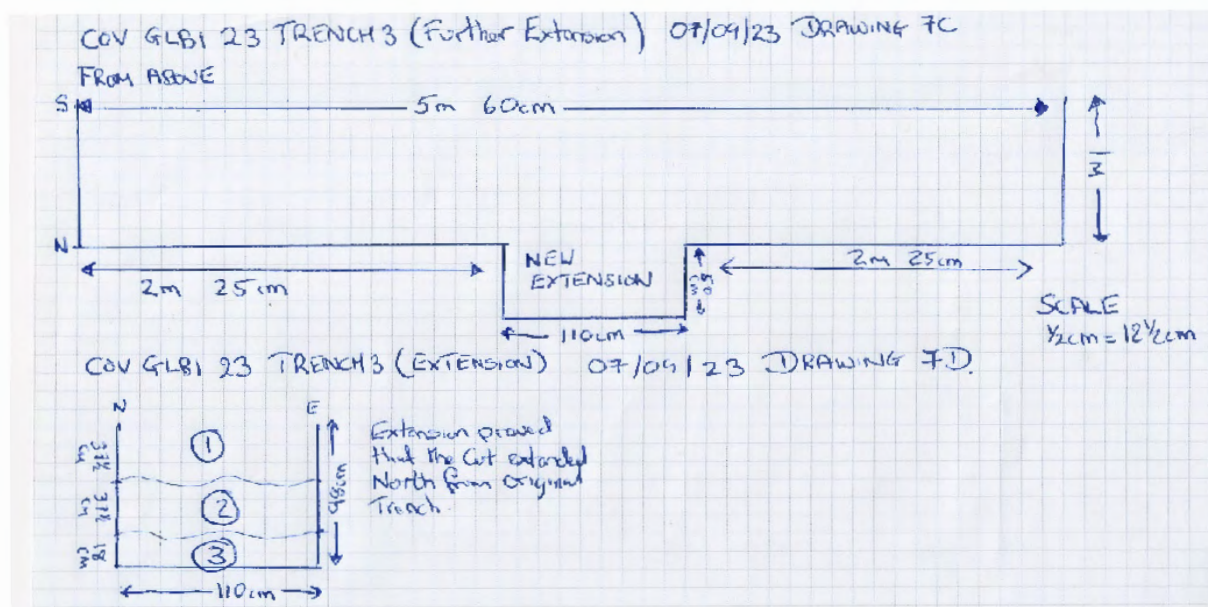 COV GLB1 23 TRENCH 3 (Further Extension) 07/09/23 DRAWING 7C
FROM ABOVE
S
5m 60cm
1M
N
2m 25cm
NEW
EXTENSION
50
2m 25cm
110cm
SCALE
½cm = 12½cm
COV GLB1 23 TRENCH 3 (EXTENSION) 07/09/23 DRAWING 7D.
N
E
1
2
3
cm
cm
18
cm
98cm
110cm
Extension proved
that the Cut extended
North from original
Trench